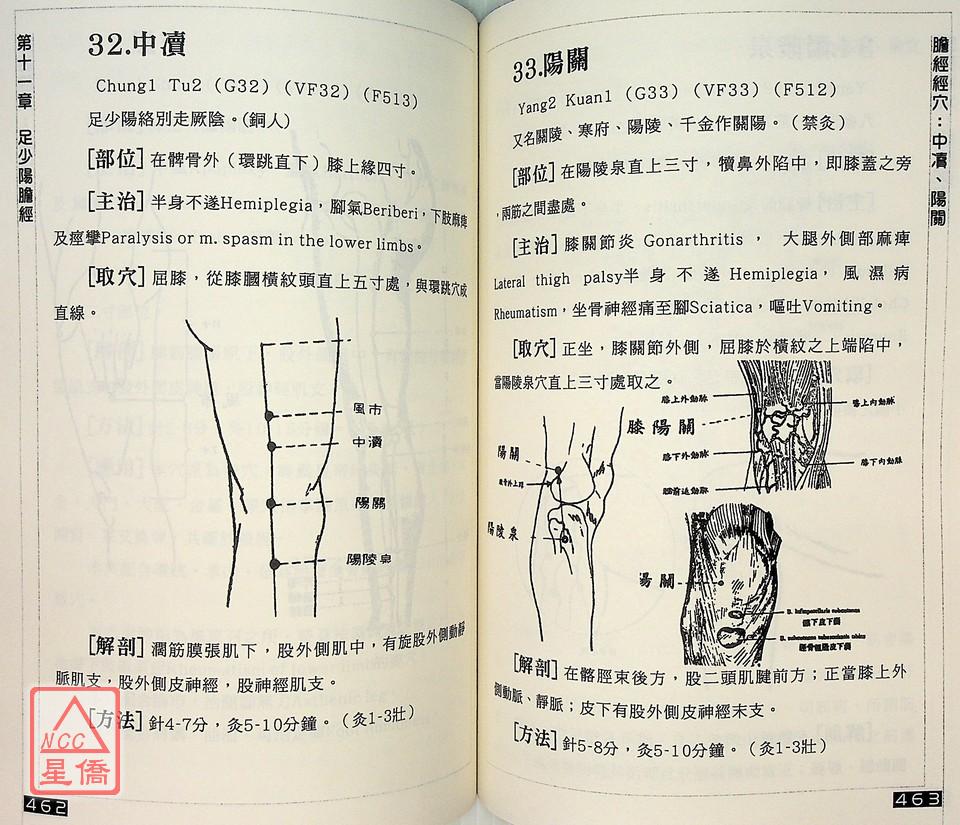 第十一章 足少陽膽經
32.中瀆
Chung1 Tu2（G32）（VF32）（F513）
足少陽絡別走厥陰。（銅人）
[部位] 在髀骨外（環跳直下）膝上緣四寸。
[主治] 半身不遂Hemiplegia，腳氣Beriberi，下肢麻痺
及痙攣Paralysis or m. spasm in the lower limbs。
[取穴] 屈膝，從膝膕橫紋頭直上五寸處，與環跳穴成
直線。
風市
中瀆
陽關
陽陵泉
[解剖] 濶筋膜張肌下，股外側肌中，有旋股外側動靜
脈肌支，股外側皮神經，股神經肌支。
[方法] 針4-7分，灸5-10分鐘。（灸1-3壯）
NCC
星僑
462
膽經經穴：中瀆、陽關
33.陽關
Yang2 Kuan1（G33）（VF33）（F512）
又名關陵、寒府、陽陵、千金作關陽。（禁灸）
[部位] 在陽陵泉直上三寸，犢鼻外陷中，即膝蓋之旁
，兩筋之間盡處。
[主治] 膝關節炎 Gonarthritis， 大腿外側部麻痺
Lateral thigh palsy半身不遂Hemiplegia，風濕病
Rheumatism，坐骨神經痛至腳Sciatica，嘔吐Vomiting。
[取穴] 正坐，膝關節外側，屈膝於橫紋之上端陷中，
當陽陵泉穴直上三寸處取之。
膝上外動脈
膝上內動脈
膝陽關
膝下外動脈
膝下內動脈
脛前返動脈
陽關
陽陵泉
陽關
B. infrapatellaris subcutanea
髕下皮下囊
脛骨粗隆皮下囊
[解剖] 在髂脛束後方，股二頭肌腱前方；正當膝上外
側動脈、靜脈；皮下有股外側皮神經末支。
[方法] 針5-8分，灸5-10分鐘。（灸1-3壯）
463